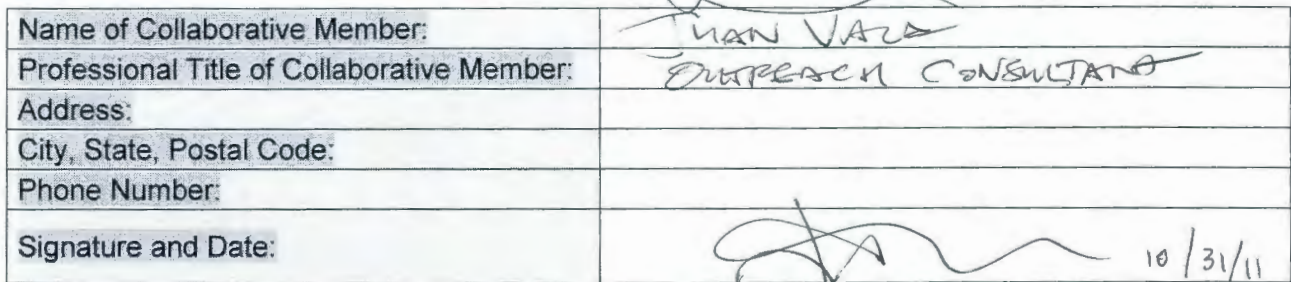 Name of Collaborative Member: JUAN
Professional Title of Collaborative Member: OUTREACH CONSULTANT
Address:
City, State, Postal Code:
Phone Number:
Signature and Date: 10/31/11